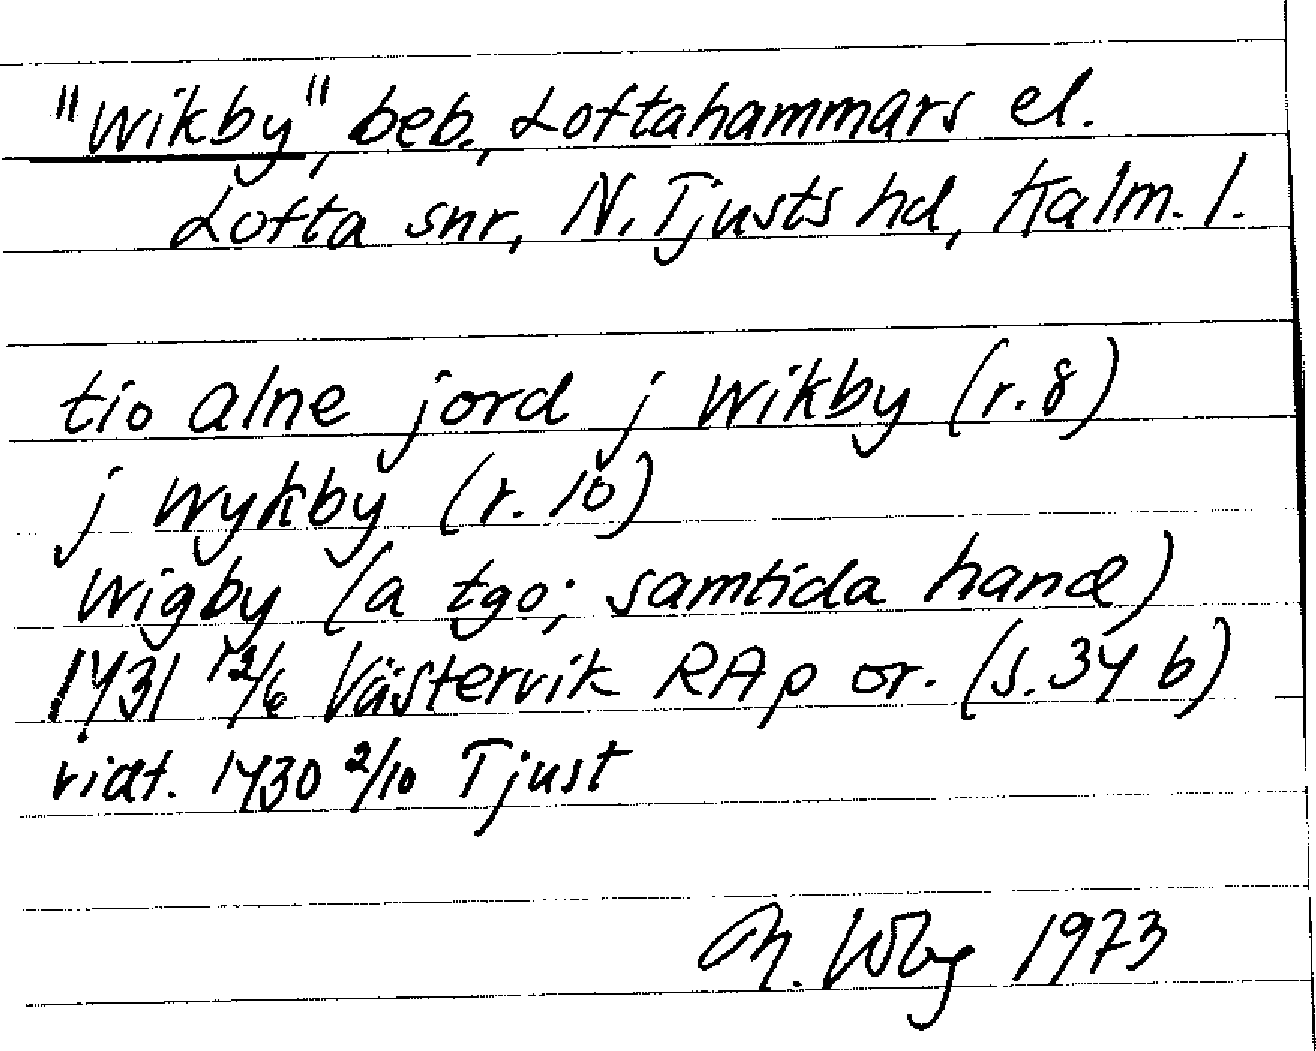 "Wikby", beb., Loftahammars el.
Lofta snr, N. Tjusts hd, Kalm. l.
tio alne jord j wikby (r. 8)
j wykby (r. 10)
wigby (a tgo; samtida hand)
1431 12/6 Västervik RAp or. (s. 34 b)
vidt. 1430 2/10 Tjust
1973